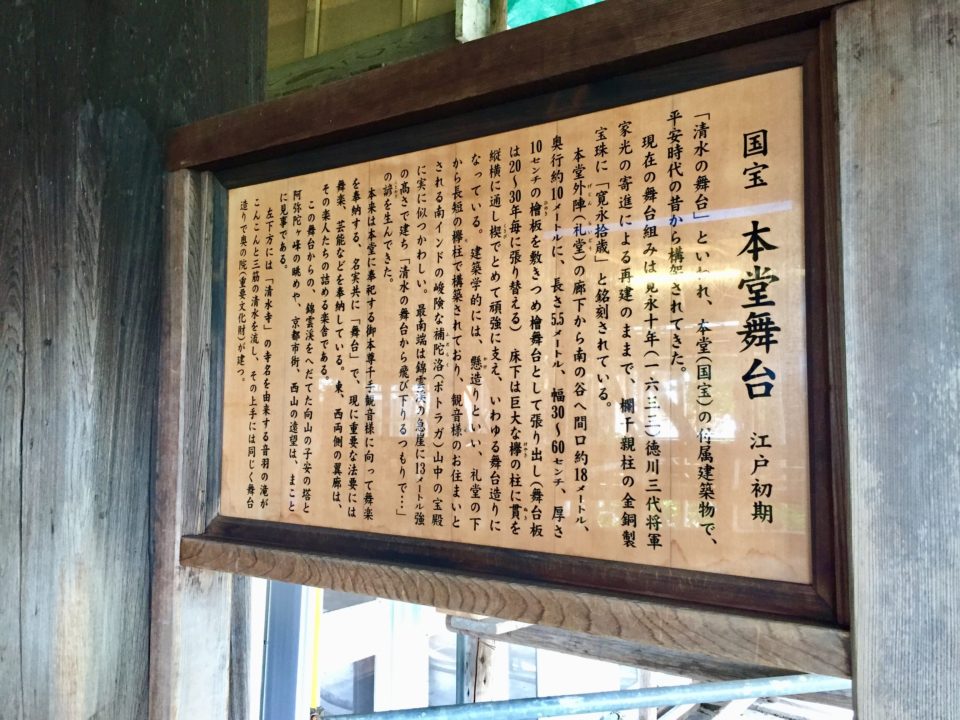 国宝 本堂舞台 江戸初期
「清水の舞台」といわれ、本堂(国宝)の付属建築物で、
平安時代の昔から構架されてきた。
現在の舞台組みは寛永十年(一六三三)徳川三代将軍
家光の寄進による再建のままで、欄干親柱の金銅製
宝珠に「寛永拾歳」と銘刻されている。
本堂外陣(礼堂)の廊下から南の谷へ間口約18メートル、
奥行約10メートルに、長さ5.5メートル、幅30〜60センチ、厚さ
10センチの檜板を敷きつめ檜舞台として張り出し(舞台板
は20〜30年毎に張り替える) 床下は巨大な欅の柱に貫を
縦横に通し楔でとめて頑強に支え、いわゆる舞台造りに
なっている。建築学的には、懸造りといい、礼堂の下
から長短の欅柱で構築されており、観音様のお住まいと
される南インドの峻険な補陀洛(ポトラガ)山中の宝殿
に実に似つかわしい。最南端は錦雲渓の急崖に13メートル強
の高さで建ち「清水の舞台から飛び下りるつもりで…」
の諺を生んできた。
本来は本堂に奉祀する御本尊千手観音様に向って舞楽
を奉納する、名実共に「舞台」で、現に重要な法要には
舞楽、芸能などを奉納している。東、西両側の翼廊は、
その楽人たちの詰める楽舎である。
この舞台からの、錦雲渓をへだてた向山の子安の塔と
阿弥陀ヶ峰の眺めや、京都市街、西山の遠望は、まこと
に見事である。
左下方には「清水寺」の寺名を由来する音羽の滝が
こんこんと三筋の清水を流し、その上手には同じく舞台
造りで奥の院(重要文化財)が建つ。